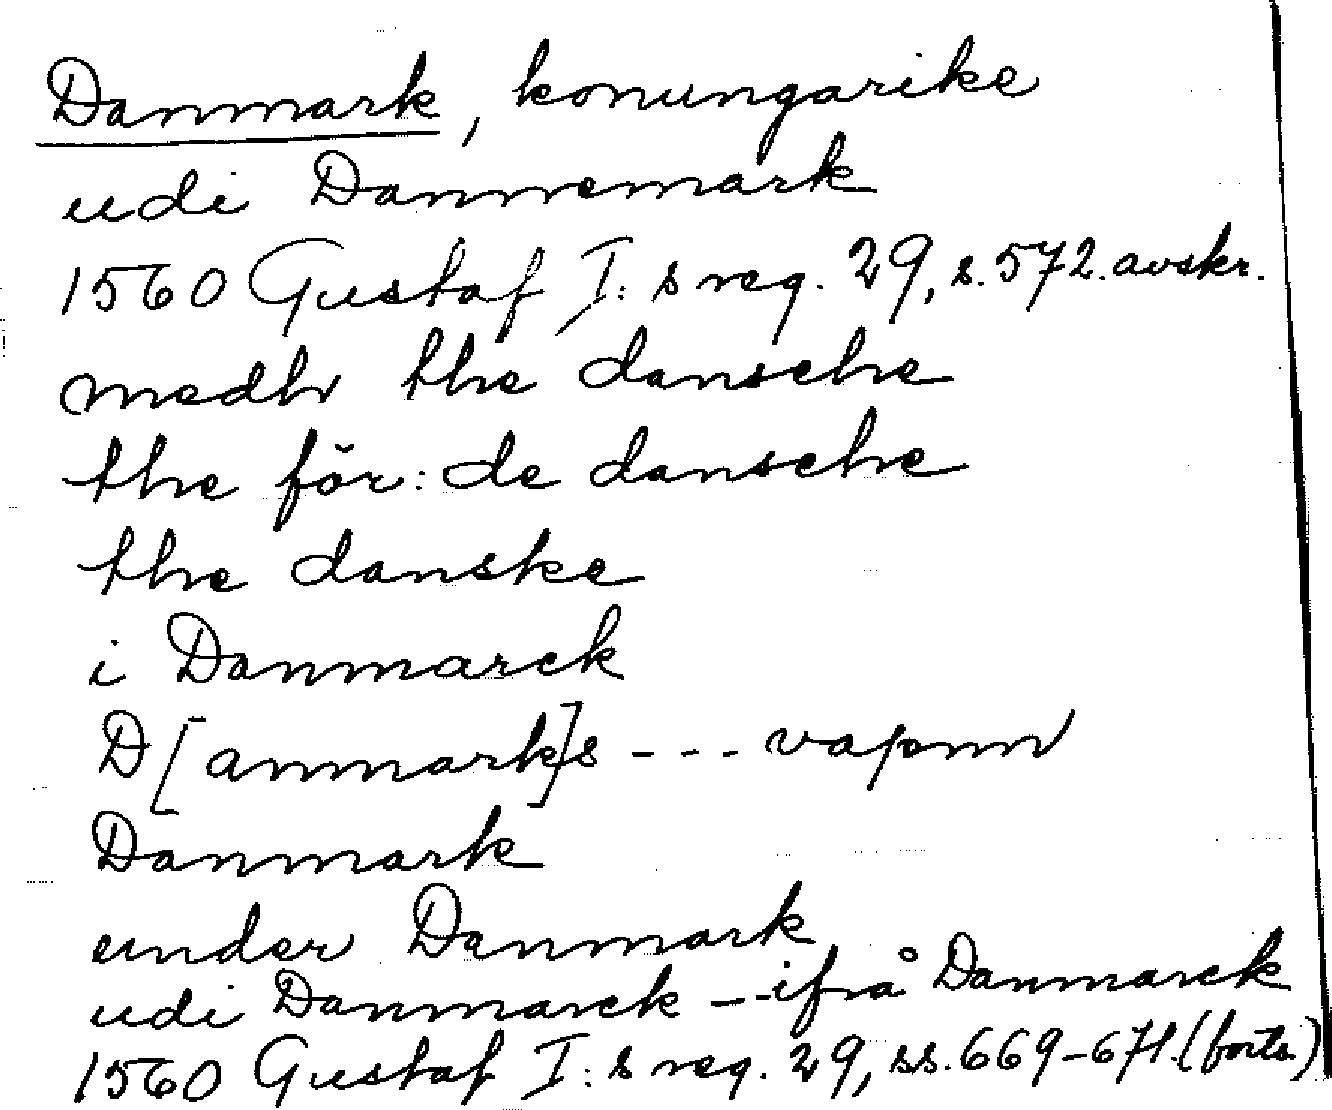 Danmark, konungarike
udi Dannemark
1560 Gustaf I:s reg. 29, s. 572. avskr.
medh the dansche
the för: de dansche
the danske
i Danmarck
D[anmark]s --- vapnn
Danmark
under Danmark
udi Danmarck --- ifrå Danmarck
1560 Gustaf I:s reg. 29, ss. 669-671. (forts.)